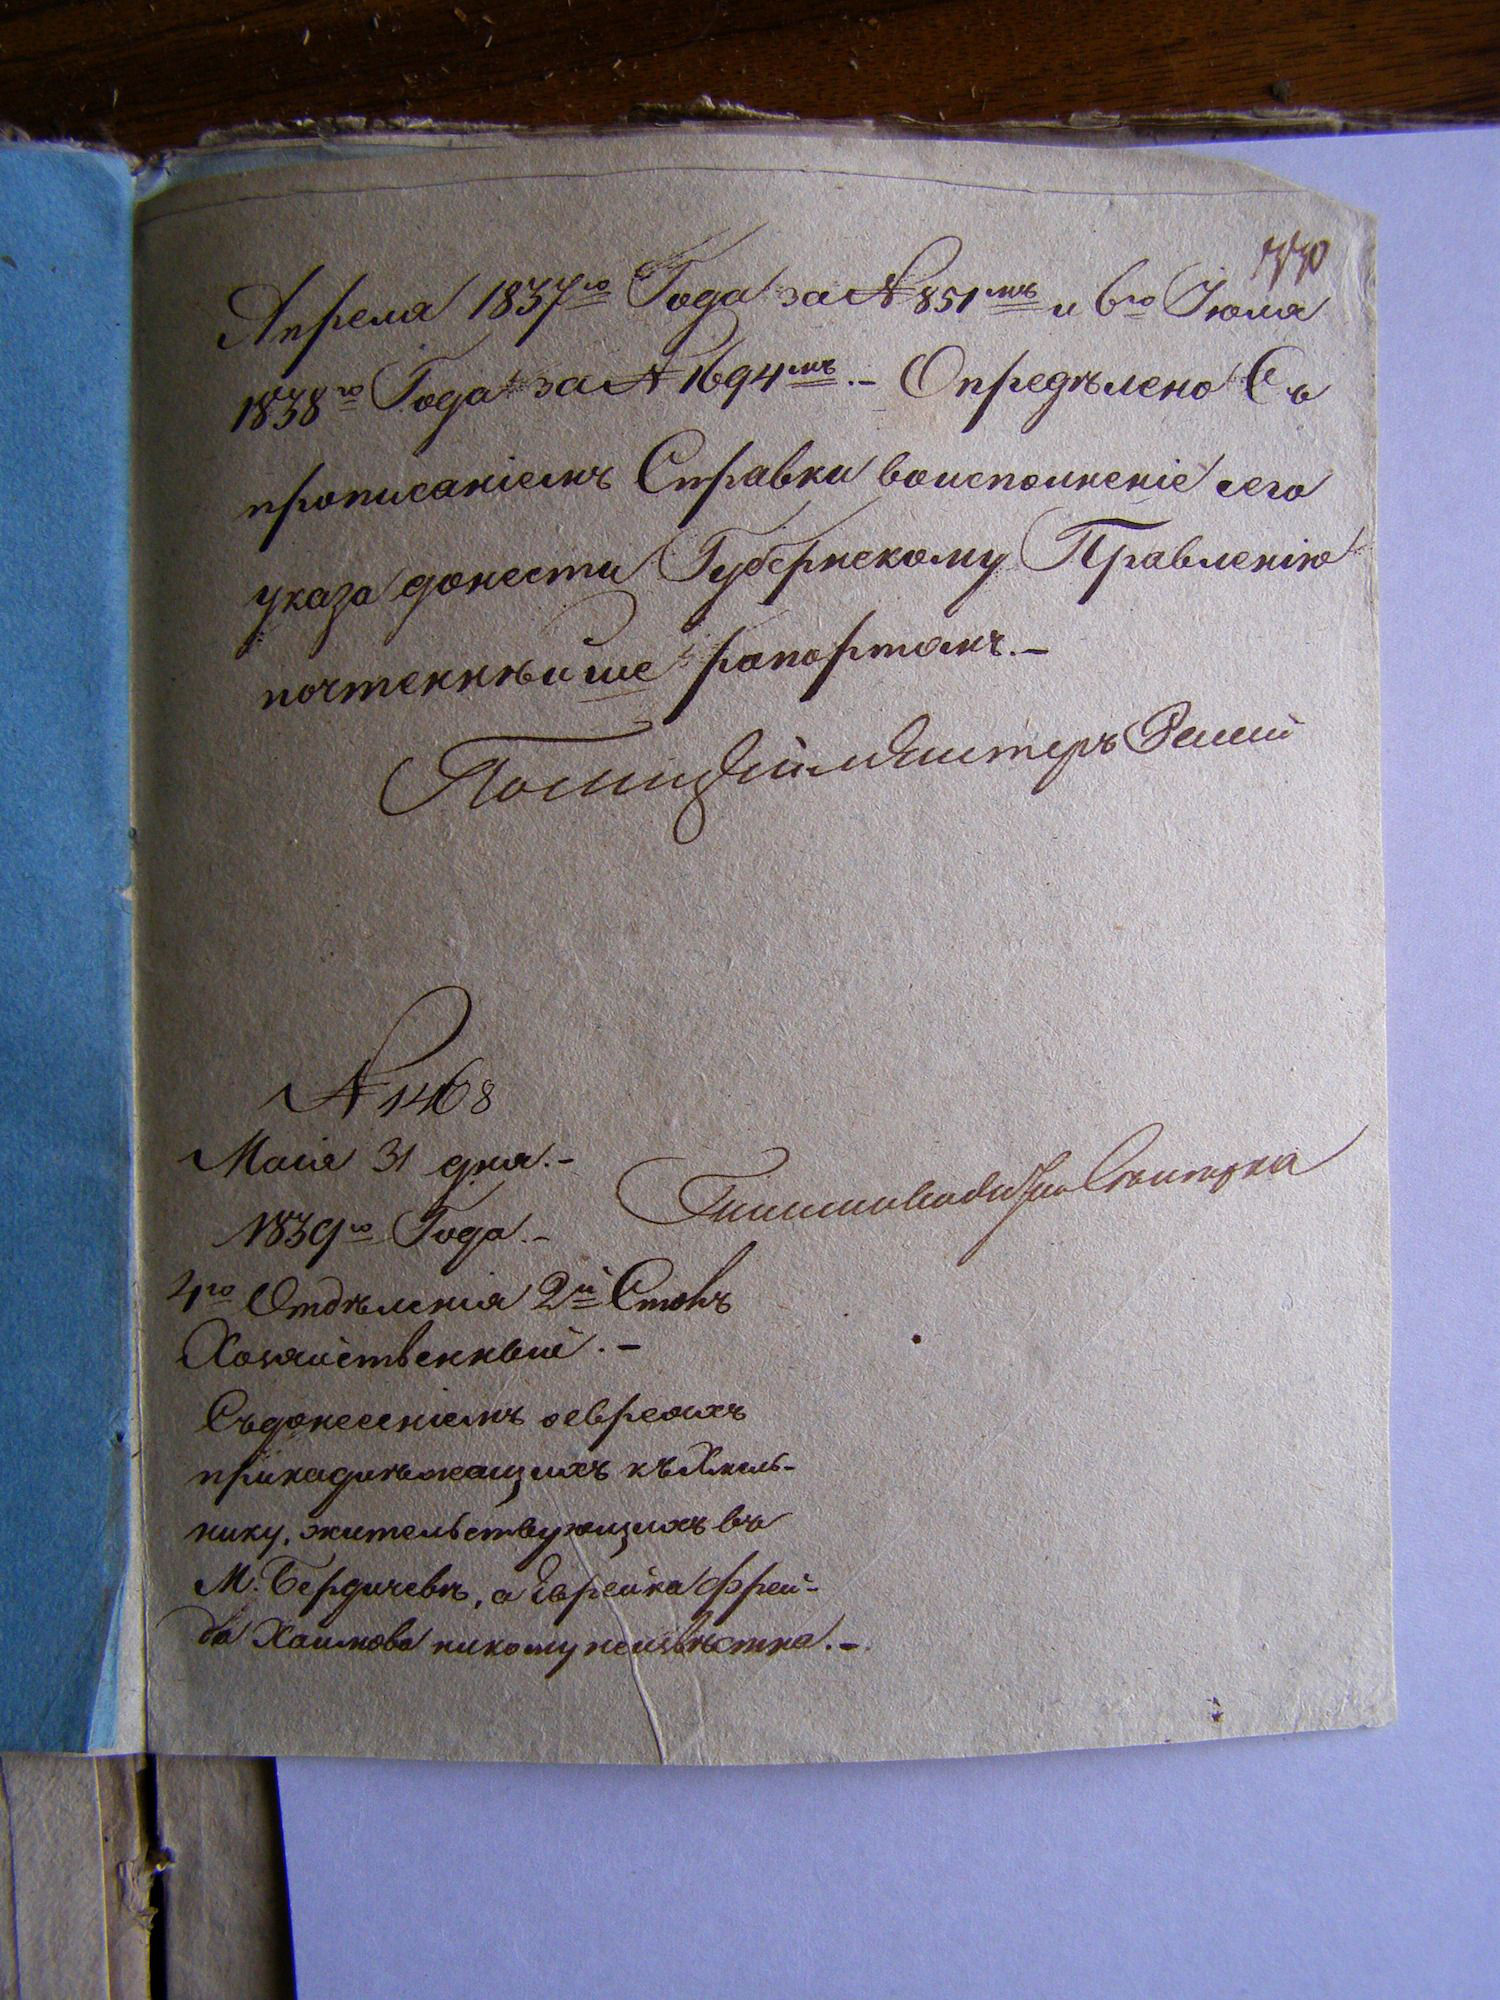 330
Апреля 1837го Года за № 851мъ и 6го Июля
1838го Года за № 1694мъ. – Определено Съ
прописаніемъ Справки воисполненіе сего
указа донести Губернскому Правленію
почтеннѣише рапортомъ. –
Полицеймейстеръ
№ 1468
Маія 31 дня. –
1839го Года. –
4го Отдѣленія 2й Столъ
Хозяйственный. –
Съдонесеніемъ оевреяхъ
принадлежащихъ къ Хмель-
нику, жительствующихъ въ
М. Бердичевѣ, а Еврейка Фрей-
да Хаимова никому неизвѣстна. –